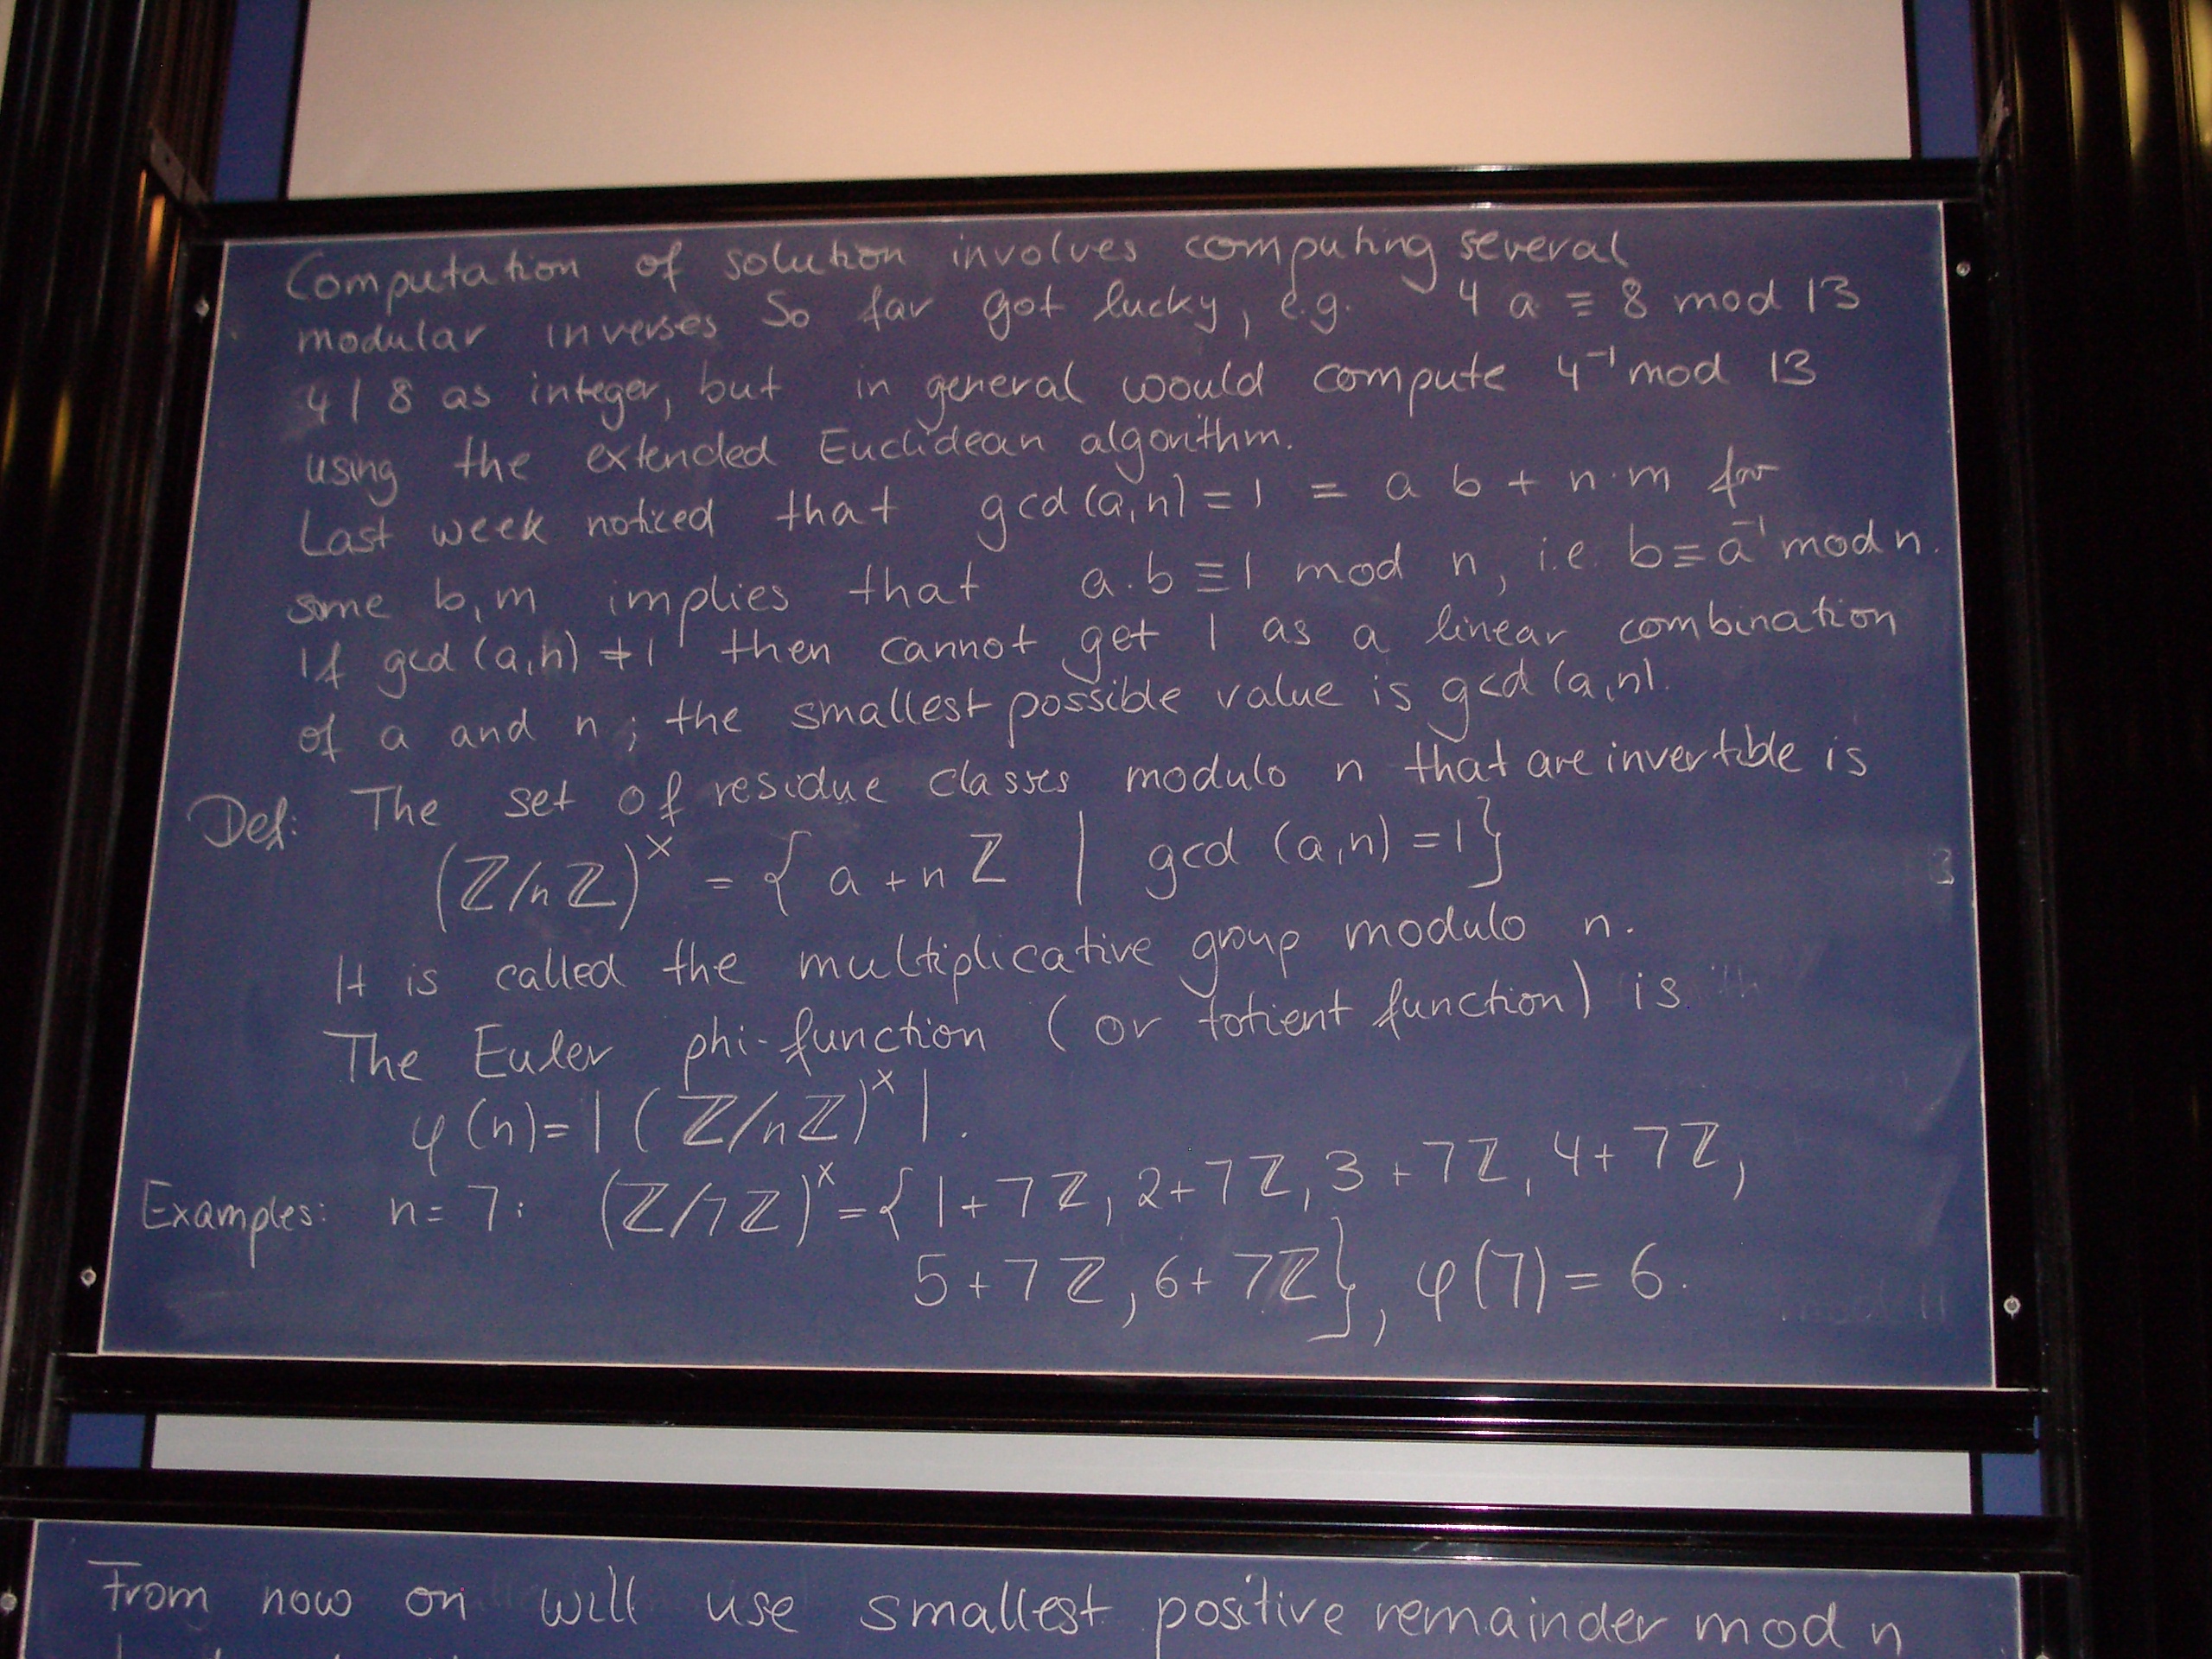 Computation of solution involves computing several
modular inverses So far got lucky, e.g. 4 a ≡ 8 mod 13
4 | 8 as integer, but in general would compute 4⁻¹ mod 13
using the extended Euclidean algorithm.
Last week noticed that gcd(a,n) = 1 = a b + n·m for
some b,m implies that a·b ≡ 1 mod n, i.e. b ≡ a⁻¹ mod n.
If gcd(a,n) ≠ 1 then cannot get 1 as a linear combination
of a and n; the smallest possible value is gcd(a,n).
Def: The set of residue classes modulo n that are invertible is
(ℤ/nℤ)ˣ = { a + nℤ | gcd (a,n) = 1}
It is called the multiplicative group modulo n.
The Euler phi-function (or totient function) is
φ(n) = |(ℤ/nℤ)ˣ|.
Examples: n = 7: (ℤ/7ℤ)ˣ = {1+7ℤ, 2+7ℤ, 3+7ℤ, 4+7ℤ,
5+7ℤ, 6+7ℤ}, φ(7) = 6.
From now on will use smallest positive remainder mod n